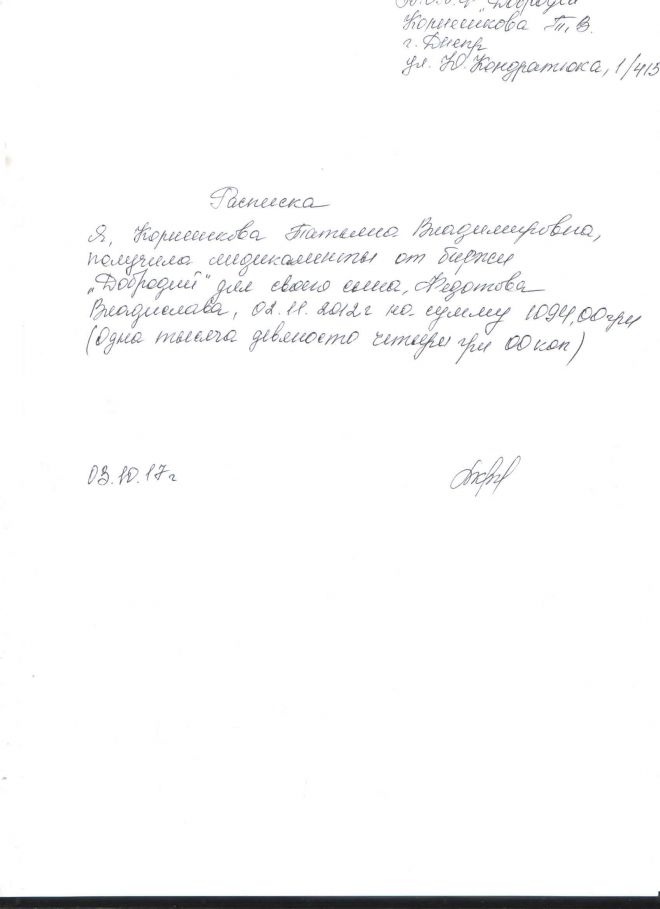 "Добродій
Коршикова Т.В.
г. Днепр
ул. Ю. Кондратюка, 1/413
Расписка
Я, Коршикова Татьяна Владимировна,
получила медикаменты от биржи
„Добродий" для своего сына, Федотова
Владислава, 02.11.2012г на сумму 1094,00грн
(Одна тысяча девяносто четыри грн 00 коп)
03.10.17г